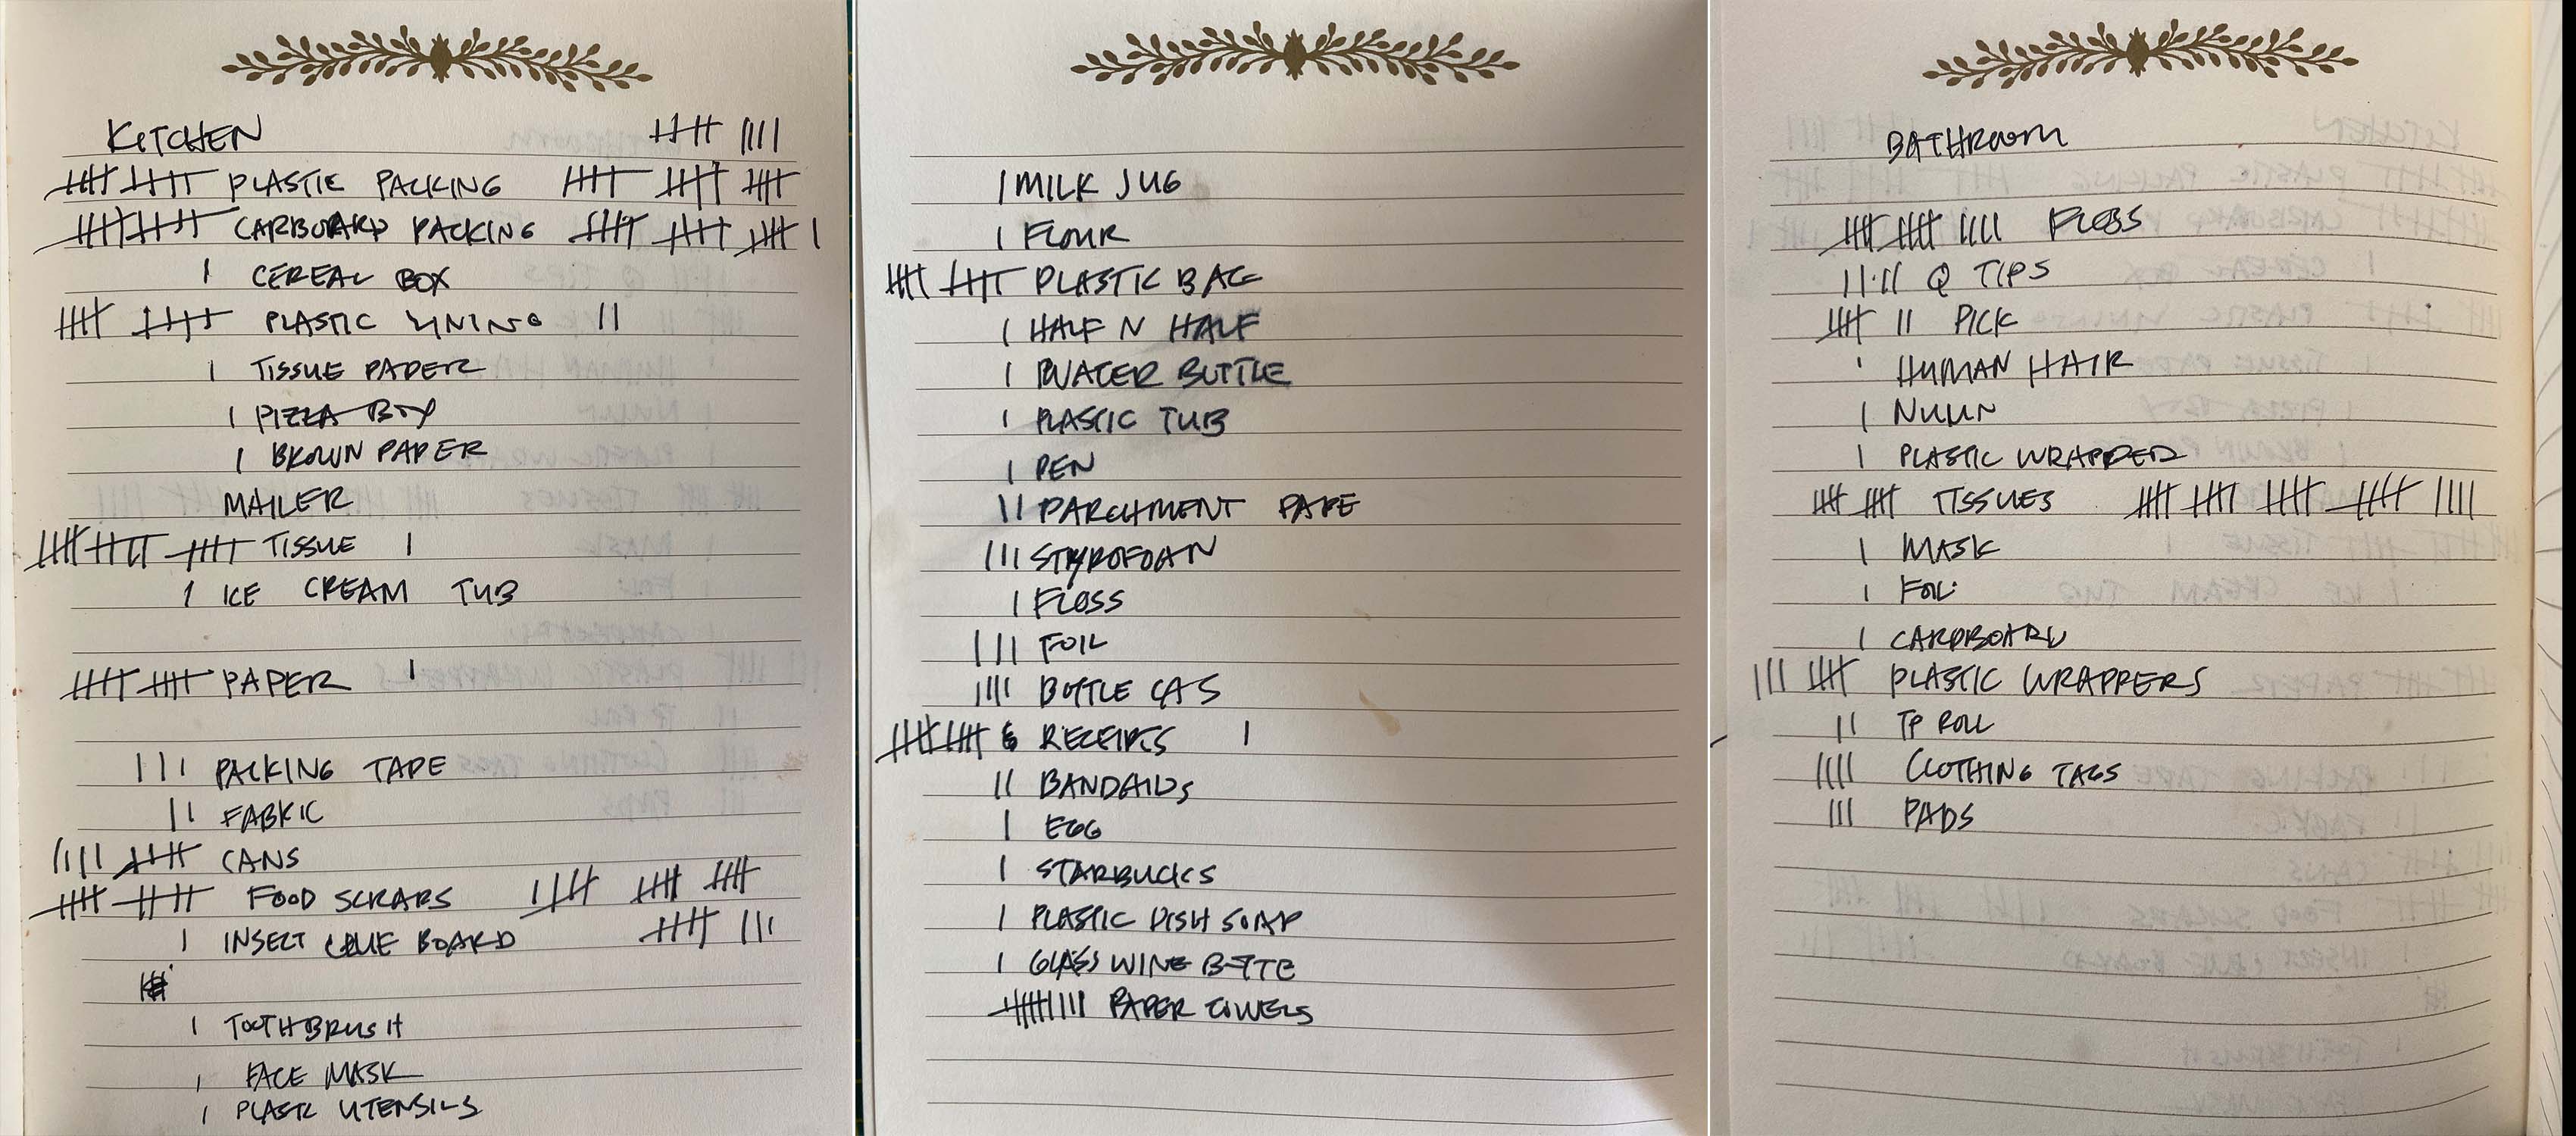 KITCHEN
PLASTIC PACKING
CARBOARD PACKING
1 CEREAL BOX
PLASTIC LINING 11
1 TISSUE PAPER
1 PIZZA BOX
1 BROWN PAPER
MAILER
TISSUE 1
1 ICE CREAM TUB
PAPER 1
111 PACKING TAPE
11 FABRIC
CANS
FOOD SCRAPS
1 INSECT GLUE BOARD
1 TOOTHBRUSH
1 FACE MASK
1 PLASTC UTENSILS
1 MILK JUG
1 FLOUR
PLASTIC BAG
1 HALF N HALF
1 WATER BOTTLE
1 PLASTIC TUB
1 PEN
11 PARCHMENT PAPE
111 STYROFOAM
1 FLOSS
111 FOIL
1111 BOTTLE CAS
RECEIPTS 1
11 BANDAIDS
1 EGG
1 STARBUCKS
1 PLASTIC DISH SOAP
1 GLASS WINE BOTTE
PAPER TOWELS
BATHROOM
FLOSS
1111 Q TIPS
PICK
1 HUMAN HAIR
1 NUUN
1 PLASTIC WRAPPER
TISSUES
1 MASK
1 FOIL
1 CARDBOARD
PLASTIC WRAPPERS
11 TP ROLL
1111 CLOTHING TAGS
111 PADS